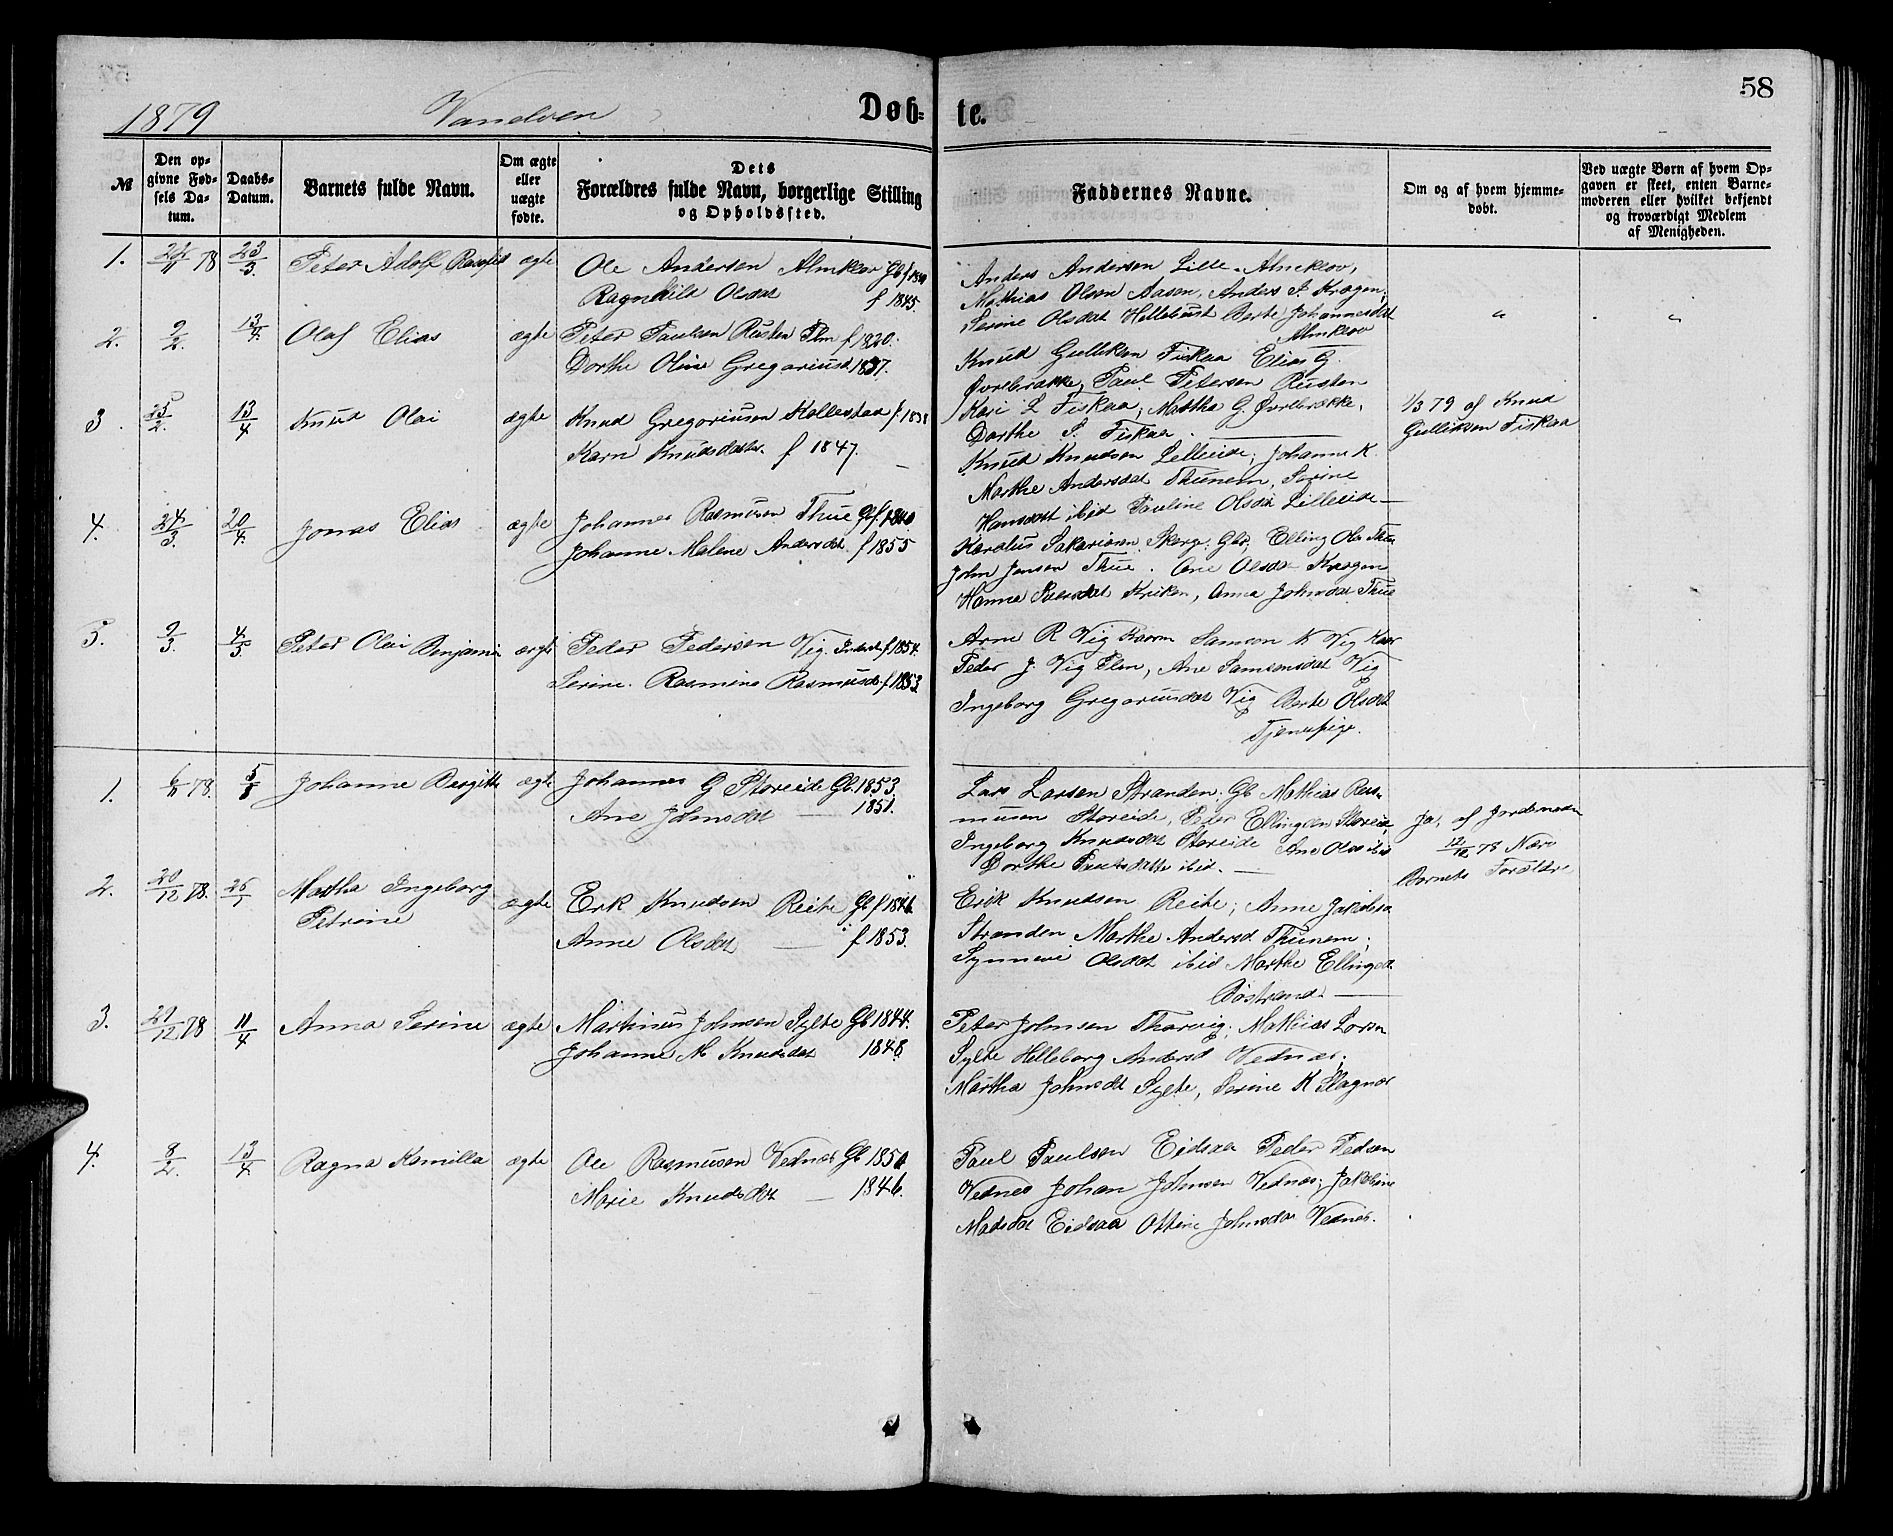 58
1879 Vanelven Døb- te.
№
Den op-
givne Fød-
sels Da-
tum.
Daabs-
Datum.
Barnets fulde Navn.
Om ægte
eller
uægte
fødte.
Dets
Forældres fulde Navn, borgerlige Stilling
og Opholdssted.
Faddernes Navne.
Om og af hvem hjemme-
døbt.
Ved uægte Børn af hvem Op-
gaven er skeet, enten Barne-
moderen eller hvilket bekjendt
og troværdigt Medlem
af Menigheden.
1. 78 23/3 Peter Adolf ægte Ole Andersen Almklov Gb f
Ragnhild Olsdat f 1845.
Anders Andersen Lille-Almklov,
Mathias Olsen Aasen, Anders P. Kragen,
Serine Olsdat Hellebust Berte Johannesdat
Almklov
2. 9/2 13/4 Olaf Elias ægte Peter Paulsen Rusten Plm f 1820.
Dorthe Oline Gregoriusd 1837.
Knud Gulliksen Fiskaa Elias G.
Øvrebrække, Paul Petersen Rusten
Kari L Fiskaa, Martha G. Øvrebrække,
Dorthe S. Fiskaa.
3. 25/2 13/4 Knud Olai ægte Knud Gregoriusen f. 1838
Karn Knudsdatr. f 1847.
1/3 79 af Knud
Gulliksen Fiskaa
Knud Knudsen Lilleeide, Johanne K.
Marthe Andersdat Thunem, Serine
Hansdat ibid Pauline Olsdat Lilleeide
4. 24/3. 20/4. Jonas Elias ægte Johannes Rasmusen Thue Gb f 1840
Johanne Malene Andersdat. f 1855
Karolus Sakariasen Skorge. Gbr, Elling Ols Thue
John Jensen Thue. Ane Olsdat Kragen
Hanne Larsdat Kriken, Anna Johnsdat Thue
5. 9/3. 4/5 Peter Olai Benjamin ægte Peder Pedersen Vig. Inderst f 1854.
Serine. Rasmine Rasmusdt f 1853
Arne R Vig Kaarm Samson K Vig Kaar
Peder J. Vig Plm, Ane Samsonsdat Vig
Ingeborg Gregoriusdat Vig Berte Olsdat
Tjenepige.
1. 6/11 78. Johanne Birgitte ægte Johannes G Storeide Gb. 1853.
Ane Johnsdat — 1851.
Lars Larsen Stranden. Gb Mathias Ras-
musen Storeide, Peder Ellingsen Storeide
Ingeborg Knudsdat Storeide Ane Olsd ibid
Dorthe Paulsdatte ibid. —
Ja, af Jordemoderen
12/12 78 Nærv
Barnets Forældre
2. 20/12 78. 26/1 Martha Ingeborg
Petrine ægte Erik Knudsen Reite Gb f 1846
Anne Olsdat — f 1853.
Erik Knudsen Reite, Anne Jakobsd
Stranden Marthe Andersd Thunem,
Synneve Olsdat ibid Marthe Ellingsdt
Bøstrand. —
3. 78 11/4 Anna Serine ægte Martinus Johnsen Sylte Gb 1844.
Johanne M Knudsdat 1848
Peter Johnsen Thorvig, Mathias Larsen
Sylte Helleborg Andersd Vednes,
Martha Johnsdat Sylte, Serine K Slagnes
4. 8/2 13/4 Ragna Kamilla ægte Ole Rasmusen Vednes Gb 1851
Marie Knudsdat — 1846.
Paul Paulsen Eidsaa Peder Pedsen
Vednes Johan Johnsen Vednes, Jakobine
Madsdat Eidsaa Ottine Johnsdat Vednes.